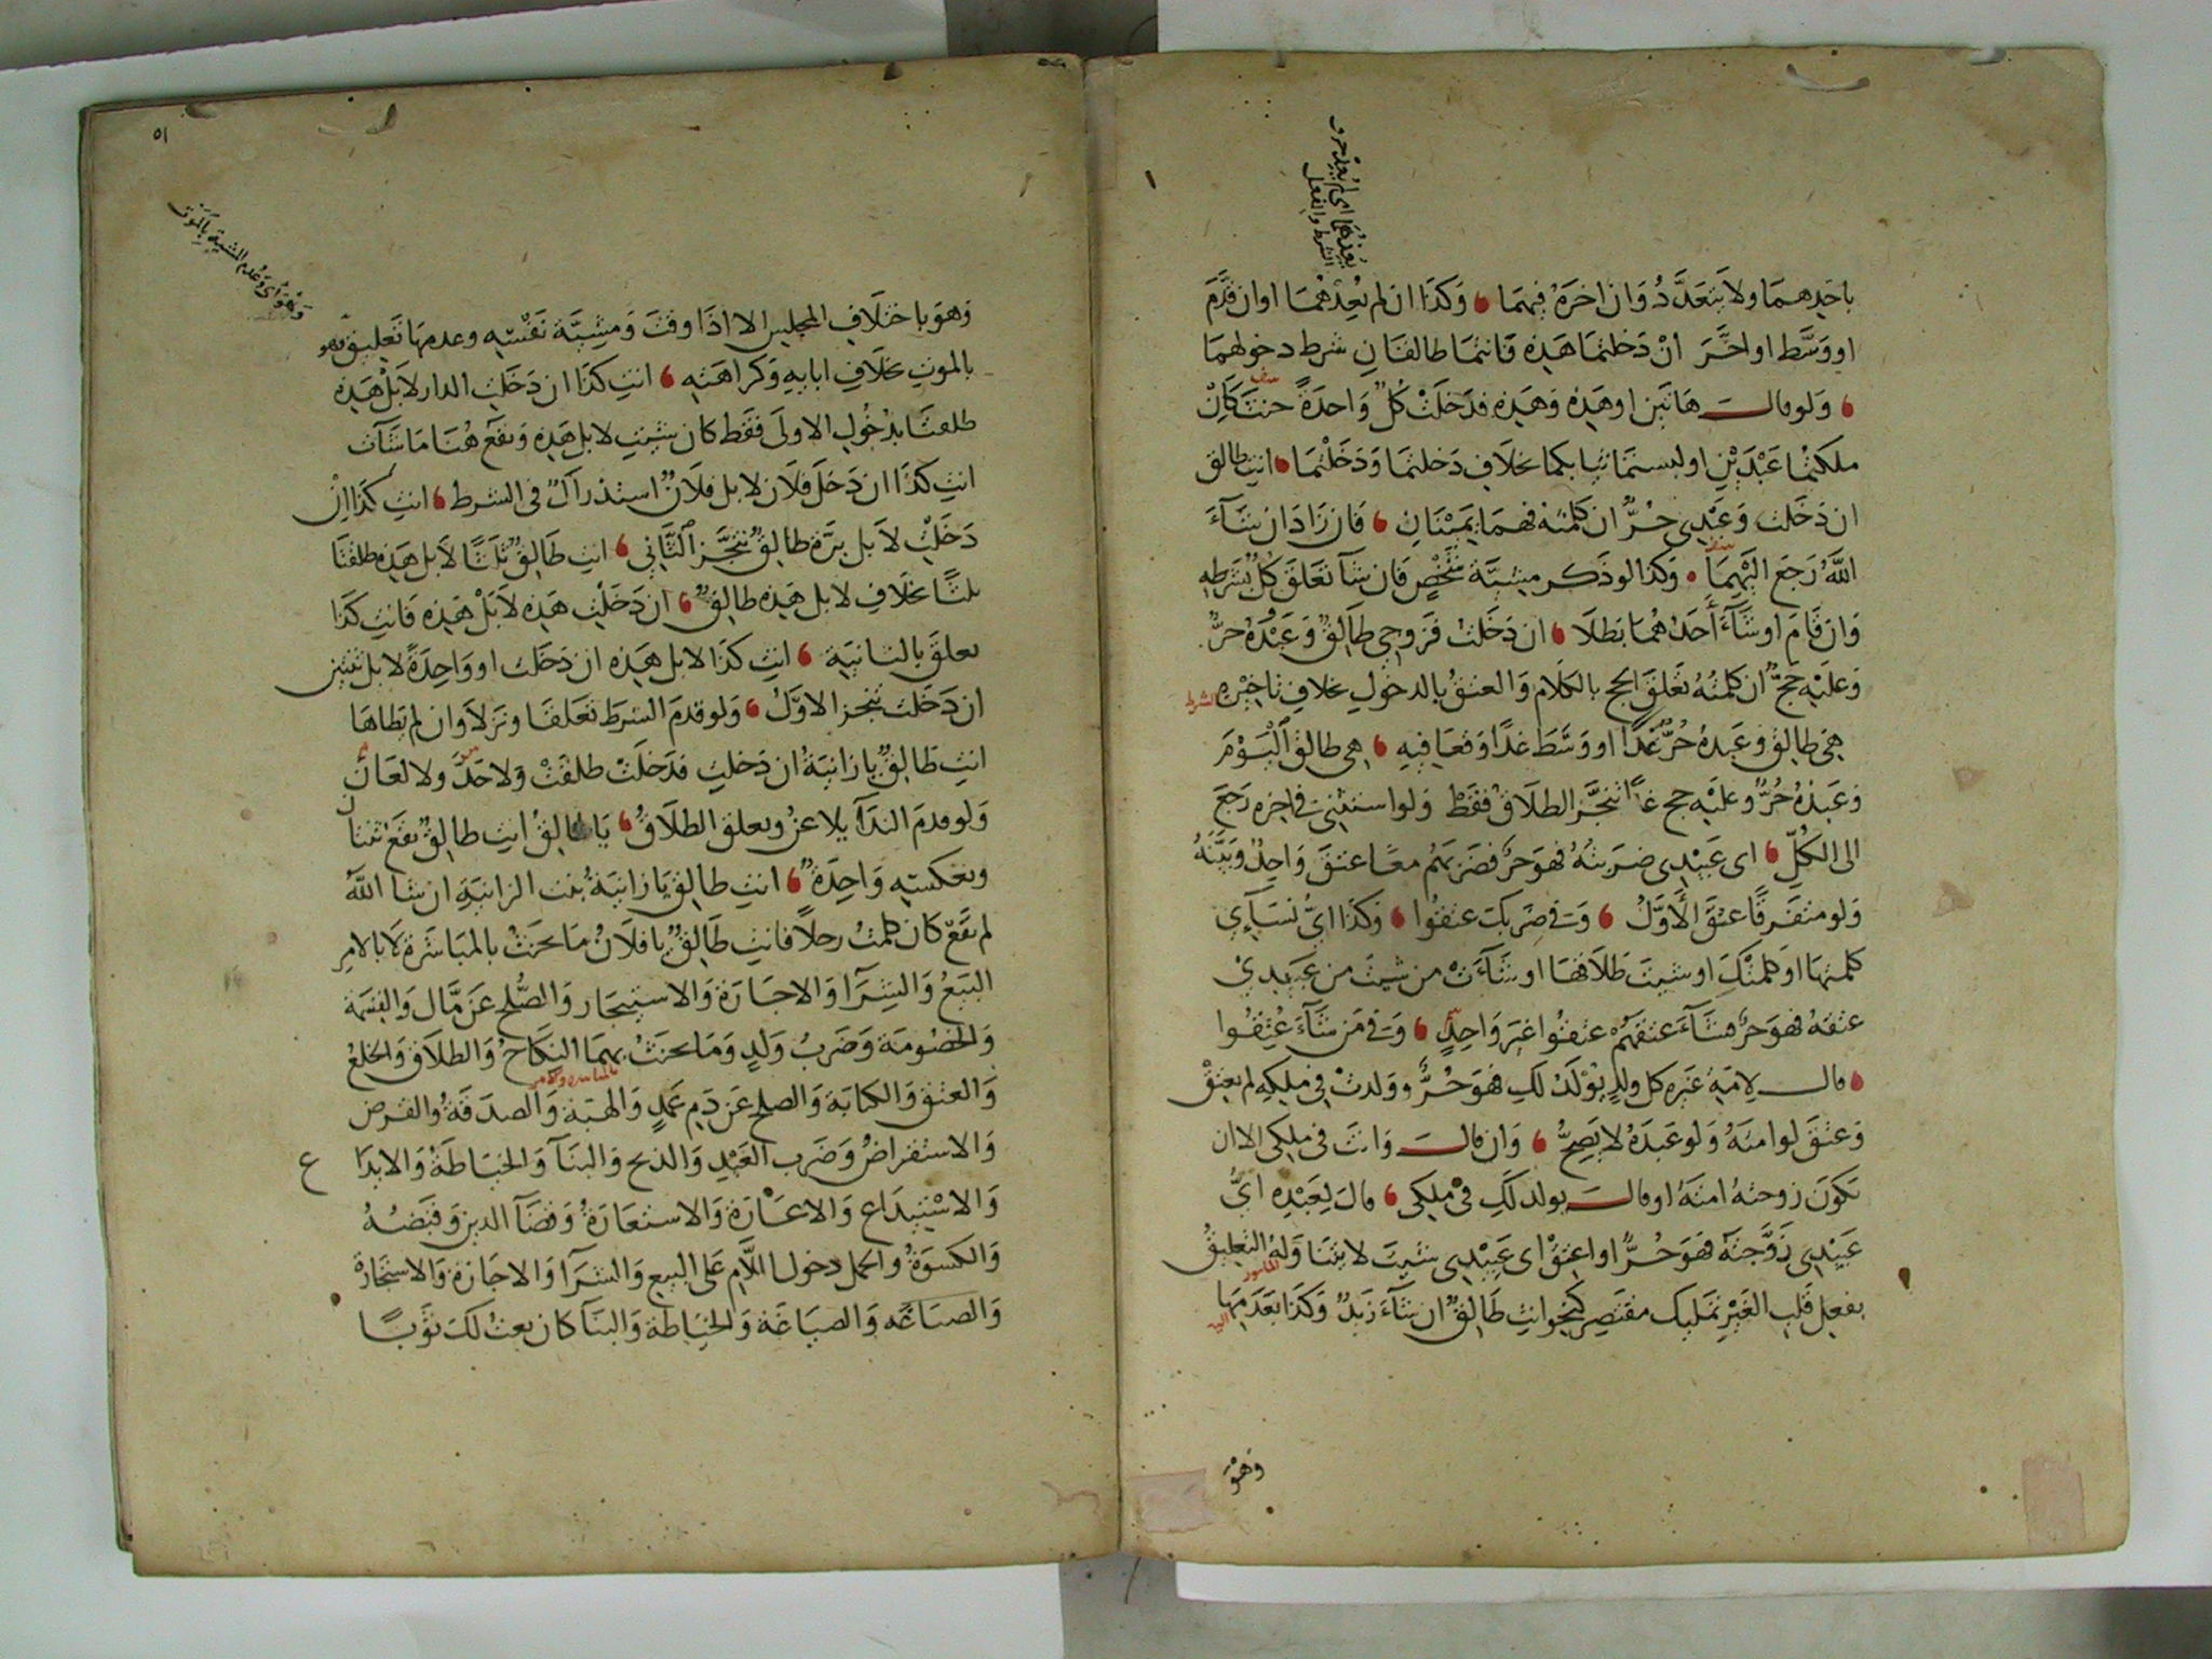 باحدهما ولا يتعدد وان اخره فيهما وكذا ان لم يعدهما او ان قدم
او وسط او اخر ان دخلتما هذه فانتما طالقتان شرط دخولهما
ولو قال هاتين او هذه وهذه فدخلت كل واحدة حنث كان
ملكتما عبدين او لبستما ثيابكما بخلاف دخلتما ودخلتما انت طالق
ان دخلت وعبدي حر ان كلمته فهما يمينان فان زاد ان شاء
الله رجع اليهما وكذا لو ذكر مشية شخص فان شا تعلق كل بشرطه
وان قام او شاء احدهما بطلا ان دخلت فزوجي طالق وعبده حر
وعليه حج ان كلمته تعلق الحج بالكلام والعتق بالدخول بخلاف تاخيره الشرط
هي طالق وعبده حر غدا او وسط غدا وقعا فيه هي طالق اليوم
وعبده حر وعليه حج غدا تنجز الطلاق فقط ولو استثنى في اخره رجع
الى الكل اي عبيدي ضربته فهو حر فضربهم معا عتق واحد وبينه
ولو متفرقا عتق الاول وفي ضربك عتقوا وكذا اي نسايي
كلمتها او كلمتك او شيت طلاقها او شاءت من شيت من عبيدي
عتقه فهو حر فشاء عتقهم عتقوا غير واحد وفي من شاء عتقوا
قال لامة غيره كل ولد يولد لك فهو حر وولدت في ملكه لم يعتق
وعتق لو امته ولو عبده لا يصح وان قال وانت في ملكي الا ان
تكون زوجته امته او قال يولد لك في ملكي قال لعبده اي
عبيدي زوجته فهو حر او اعتق اي عبيدي شيت لا يثنا وله التعليق
بفعل قلب الغير تمليك مقتصر كنحو انت طالق ان شاء زيد وكذا بعدمها
وهو
٥١
وهو باختلاف المجلس الا اذا وقت ومشية نفسه وعدمها تعليق وهو
بالموت بخلاف ابايه وكراهته انت كذا ان دخلت الدار لا بل هذه
طلقتا بدخول الاولى فقط كان شيت لا بل هذه ويقع هنا ما شات
انت كذا ان دخل فلان لا بل فلان استدراك في الشرط انت كذا ان
دخلت لا بل برة طالق تنجز الثاني انت طالق ثلثا لا بل هذه طلقتا
ثلثا بخلاف لا بل هذه طالق ان دخلت هذه لا بل هذه فانت كذا
تعلق بالثانية انت كذا لا بل هذه ان دخلت او واحدة لا بل ثنتين
ان دخلت تنجز الاول ولو قدم الشرط تعلقا ونزلا وان لم يطاها
انت طالق يا زانية ان دخلت فدخلت طلقت ولا حد ولا لعان
ولو قدم الندا يلاعن ويعلق الطلاق يا طالق انت طالق يقع ثنتان
وبعكسه واحدة انت طالق يا زانية بنت الزانية ان شا الله
لم يقع كان كلمت رجلا فانت طالق يا فلان ما يحنث بالمباشرة لا بالامر
البيع والشرا والاجارة والاستيجار والصلح عن مال والقسمة
والخصومة وضرب ولد وما يحنث بهما النكاح والطلاق والخلع
والعتق والكتابة والصلح عن دم عمد والهبة والصدقة والقرض
والاستقراض وضرب العبد والذبح والبنا والخياطة والايداع
والاستيداع والاعارة والاستعارة وقضا الدين وقبضه
والكسوة والحمل دخول اللام على البيع والشرا والاجازة والاستجارة
والصناعه والصباغة والخياطة والبنا كان بعت لك ثوبا